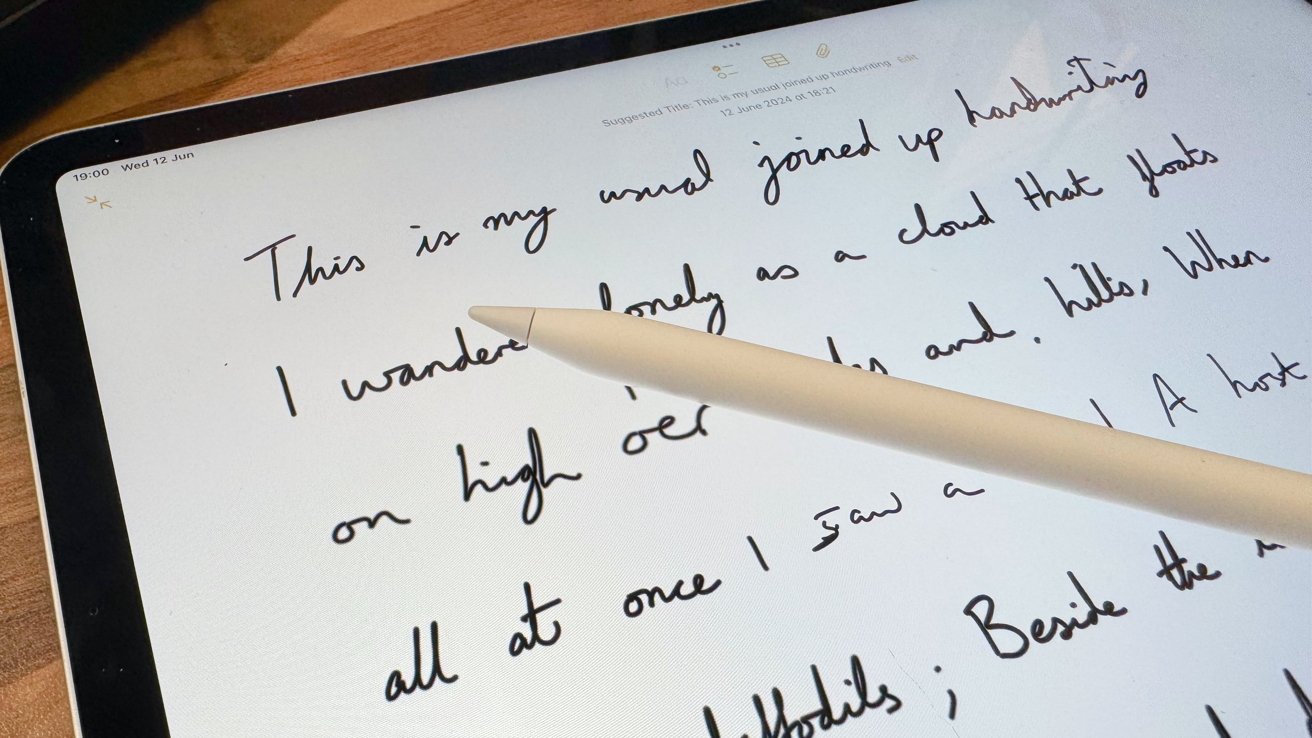 19:00 Wed 12 Jun
Aa
Suggested Title: This is my usual joined up handwriting Edit
12 June 2024 at 18:21
This is my usual joined up handwriting
I wandere lonely as a cloud that floats
on high o'er and . hills, When
all at once I saw a A host
; Beside the